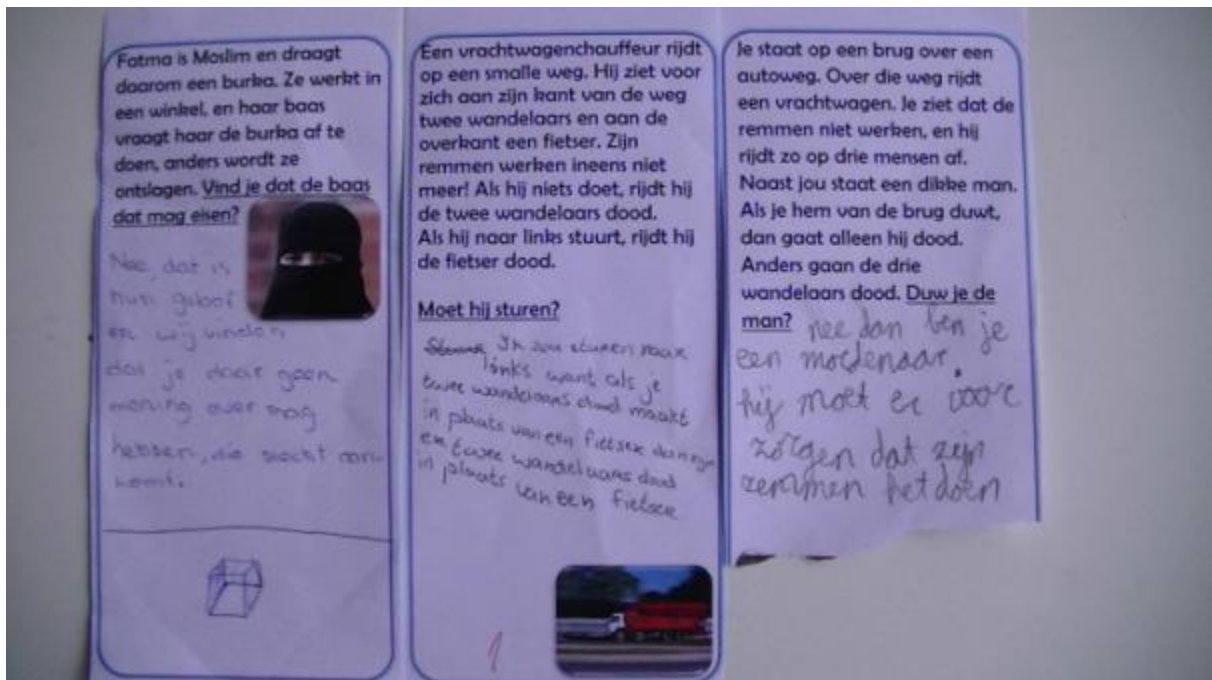 Fatma is Moslim en draagt
daarom een burka. Ze werkt in
een winkel, en haar baas
vraagt haar de burka af te
doen, anders wordt ze
ontslagen. Vind je dat de baas
dat mag eisen?
Nee, dat is
hun geloof
en wij vinden
dat je daar geen
mening over mag
hebben, die slecht aan-
komt.
Een vrachtwagenchauffeur rijdt
op een smalle weg. Hij ziet voor
zich aan zijn kant van de weg
twee wandelaars en aan de
overkant een fietser. Zijn
remmen werken ineens niet
meer! Als hij niets doet, rijdt hij
de twee wandelaars dood.
Als hij naar links stuurt, rijdt hij
de fietser dood.
Moet hij sturen?
Ik zou sturen naar
links want als je
twee wandelaars dood maakt
in plaats van een fietser dan
en twee wandelaars dood
in plaats van een fietser
1
Je staat op een brug over een
autoweg. Over die weg rijdt
een vrachtwagen. Je ziet dat de
remmen niet werken, en hij
rijdt zo op drie mensen af.
Naast jou staat een dikke man.
Als je hem van de brug duwt,
dan gaat alleen hij dood.
Anders gaan de drie
wandelaars dood. Duw je de
man? nee dan ben je
een moordenaar.
hij moet er voor
zorgen dat zijn
remmen het doen